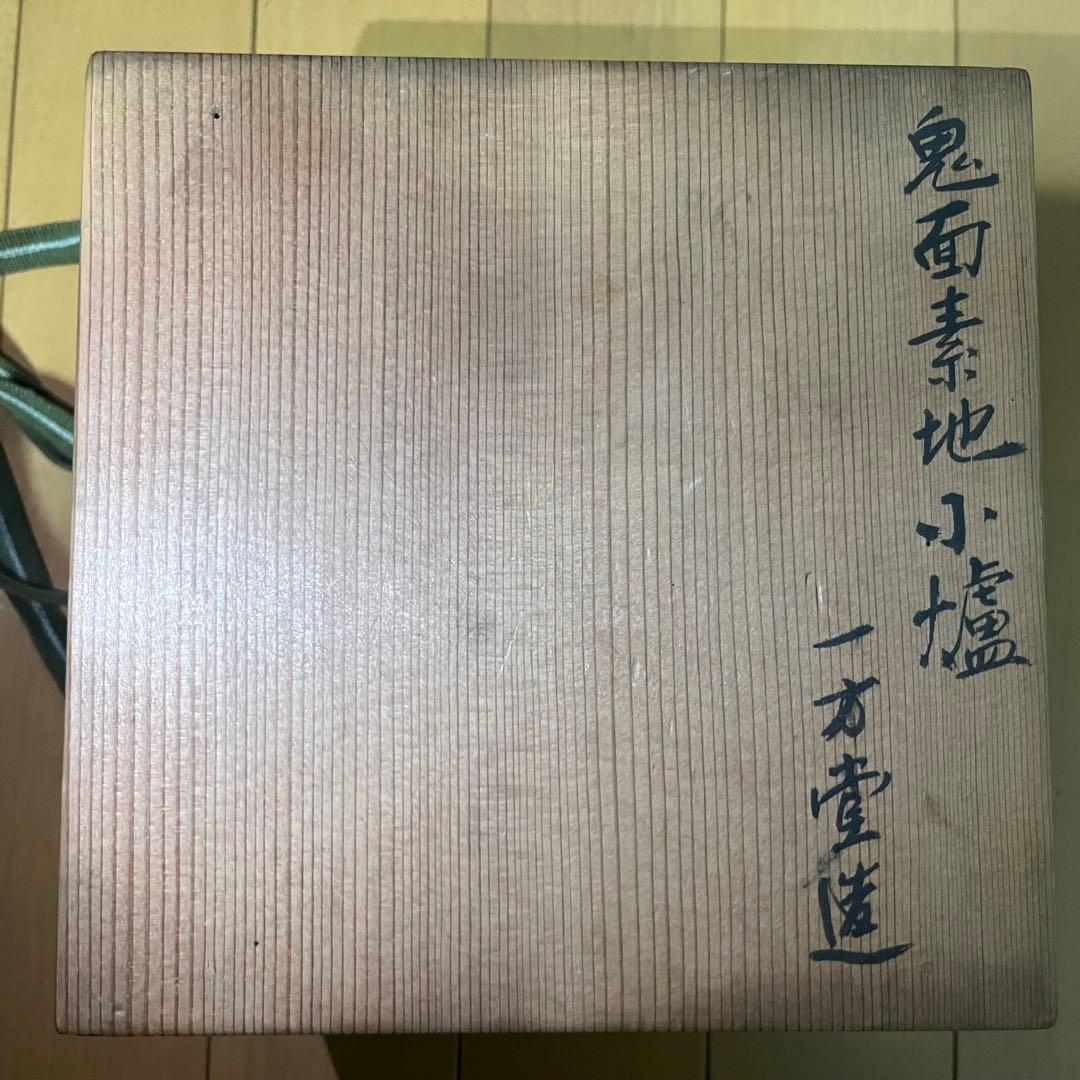 鬼面素地小爐
一方堂造